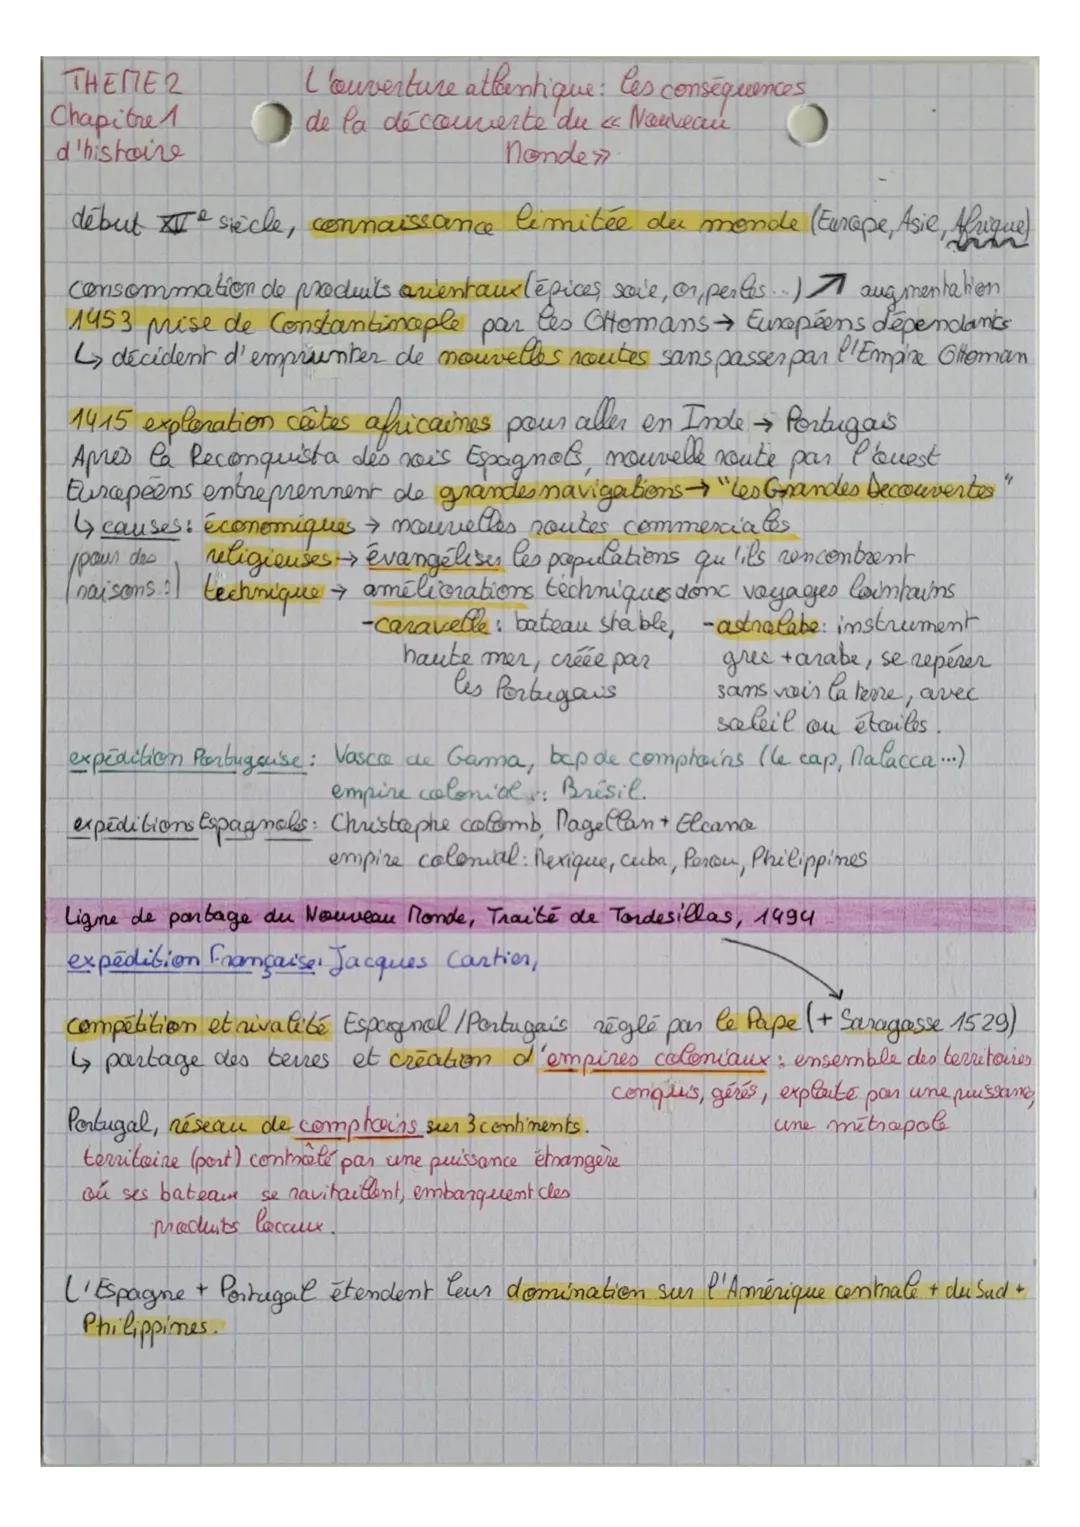 THEME 2
Chapitre 1
d'histoire
L'ouverture atlantique: les conséquences
de la découverte du « Nouveau
Monde »
début XVe siècle, connaissance limitée du monde (Europe, Asie, Afrique)
consommation de produits orientaux (épices, soie, or, perles...) ↗ augmentation
1453 prise de Constantinople par les Ottomans → Européens dépendants
↳ décident d'emprunter de nouvelles routes sans passer par l'Empire Ottoman
1415 exploration côtes africaines pour aller en Inde → Portugais
Après la Reconquista des rois Espagnols, nouvelle route par l'ouest
Européens entreprennent de grandes navigations → "Les Grandes Découvertes"
↳ causes: économiques → nouvelles routes commerciales
(pour des raisons :) religieuses → évangéliser les populations qu'ils rencontrent
technique → améliorations techniques donc voyages lointains
-caravelle: bateau stable, haute mer, créée par les Portugais
-astrolabe: instrument grec + arabe, se repérer sans voir la terre, avec soleil ou étoiles.
expédition Portugaise: Vasco de Gama, bcp de comptoirs (le cap, Malacca...)
empire colonial: Brésil.
expéditions Espagnols: Christophe colomb, Magellan + Elcano
empire colonial: Mexique, cuba, Perou, Philippines
Ligne de partage du Nouveau Monde, Traité de Tordesillas, 1494
expédition Française: Jacques Cartier,
compétition et rivalité Espagnol/Portugais réglé par le Pape (+ Saragosse 1529)
↳ partage des terres et création d'empires coloniaux: ensemble des territoires
conquis, gérés, exploité par une puissance,
une métropole
Portugal, réseau de comptoirs sur 3 continents.
territoire (port) contrôlé par une puissance étrangère
où ses bateaux se ravitaillent, embarquent des
produits locaux.
L'Espagne + Portugal étendent leur domination sur l'Amérique centrale + du Sud +
Philippines.